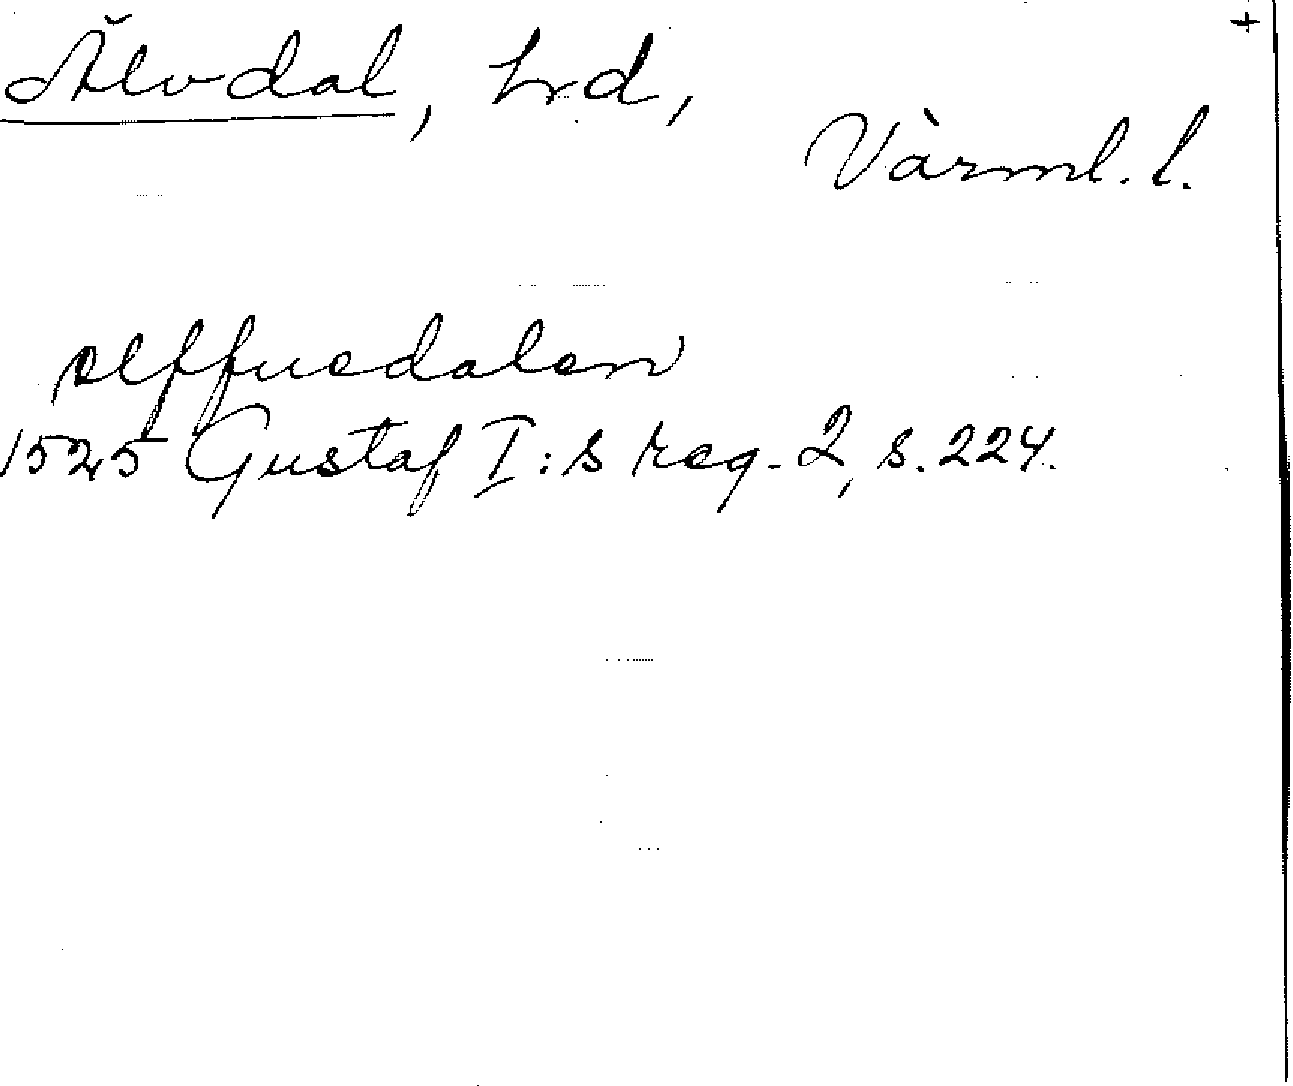 +
Älvdal, hrd,
Värml. l.
elffuedalen
1525 Gustaf I:s reg. 2, s. 224.